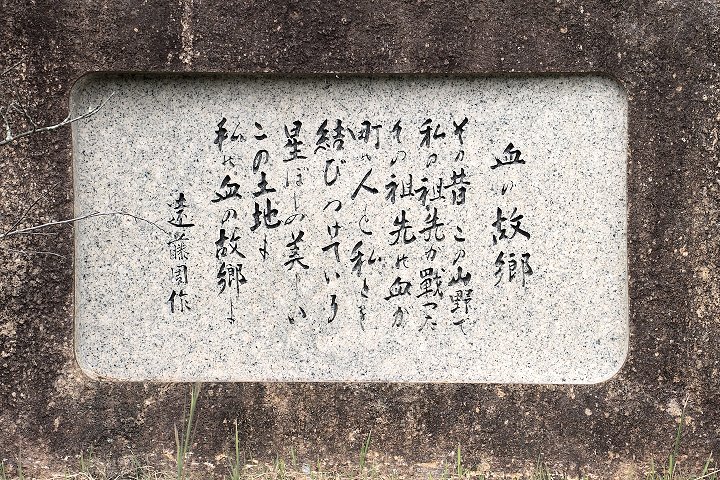 血の故郷
その昔この山野で
私の祖先が戦った
その祖先の血が
町の人と私とを
結びつけている
星ぼしの美しい
この土地よ
私の血の故郷よ
遠藤周作